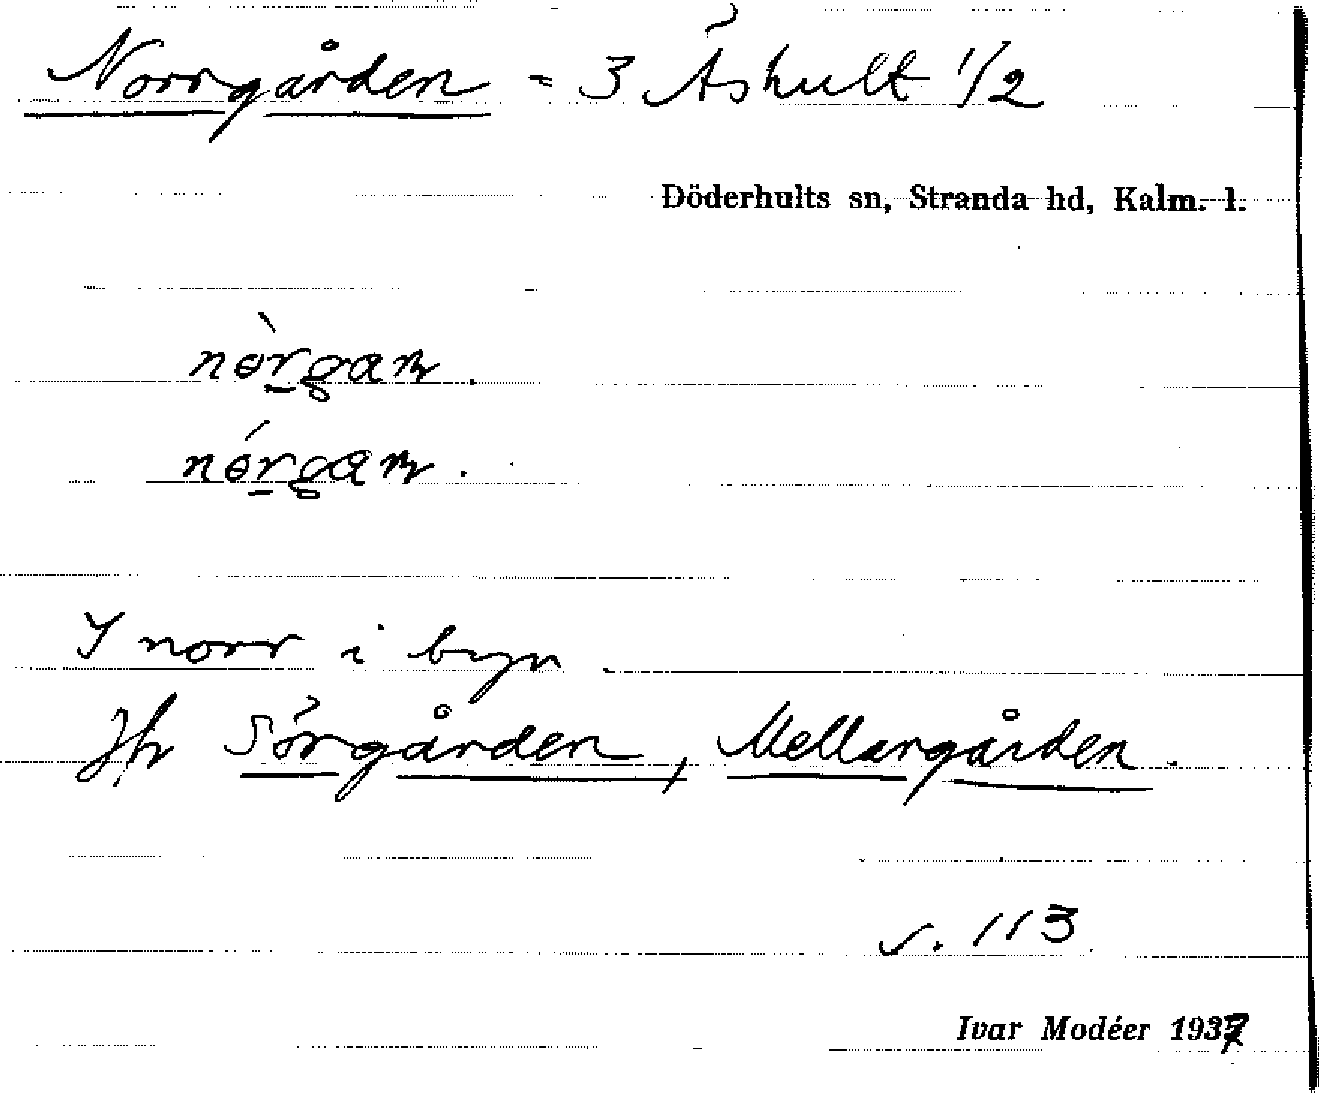 Norrgården = 3 Äshult 1/2
Döderhults sn, Stranda hd, Kalm. l.
nørgaɳ.
nørgaɳ.
I norr i byn
Jfr Sörgården, Mellangården.
s. 113
Ivar Modéer 1937